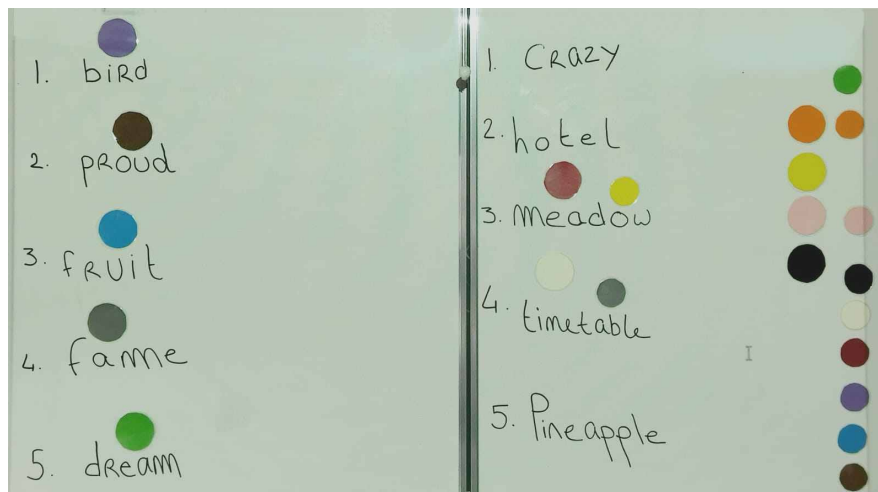 1. bird
2. proud
3. fruit
4. fame
5. dream
1. Crazy
2. hotel
3. meadow
4. timetable
5. Pineapple